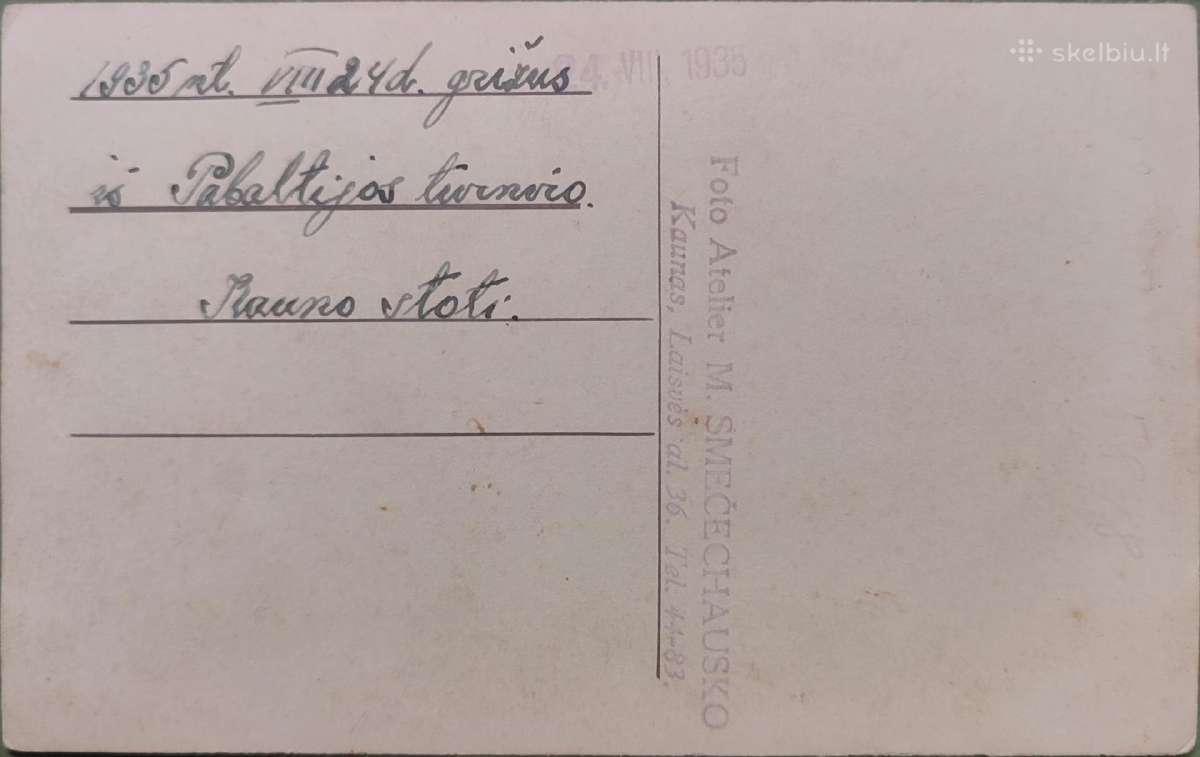 1935 mt. VIII 24 d. grižus
iš Pabaltijos turnyro.
Kauno stoti.
24. VIII. 1935
Foto Atelier M. SMEČECHAUSKO
Kaunas, Laisvės al. 36. Tel. 44-83.
skelbiu.lt